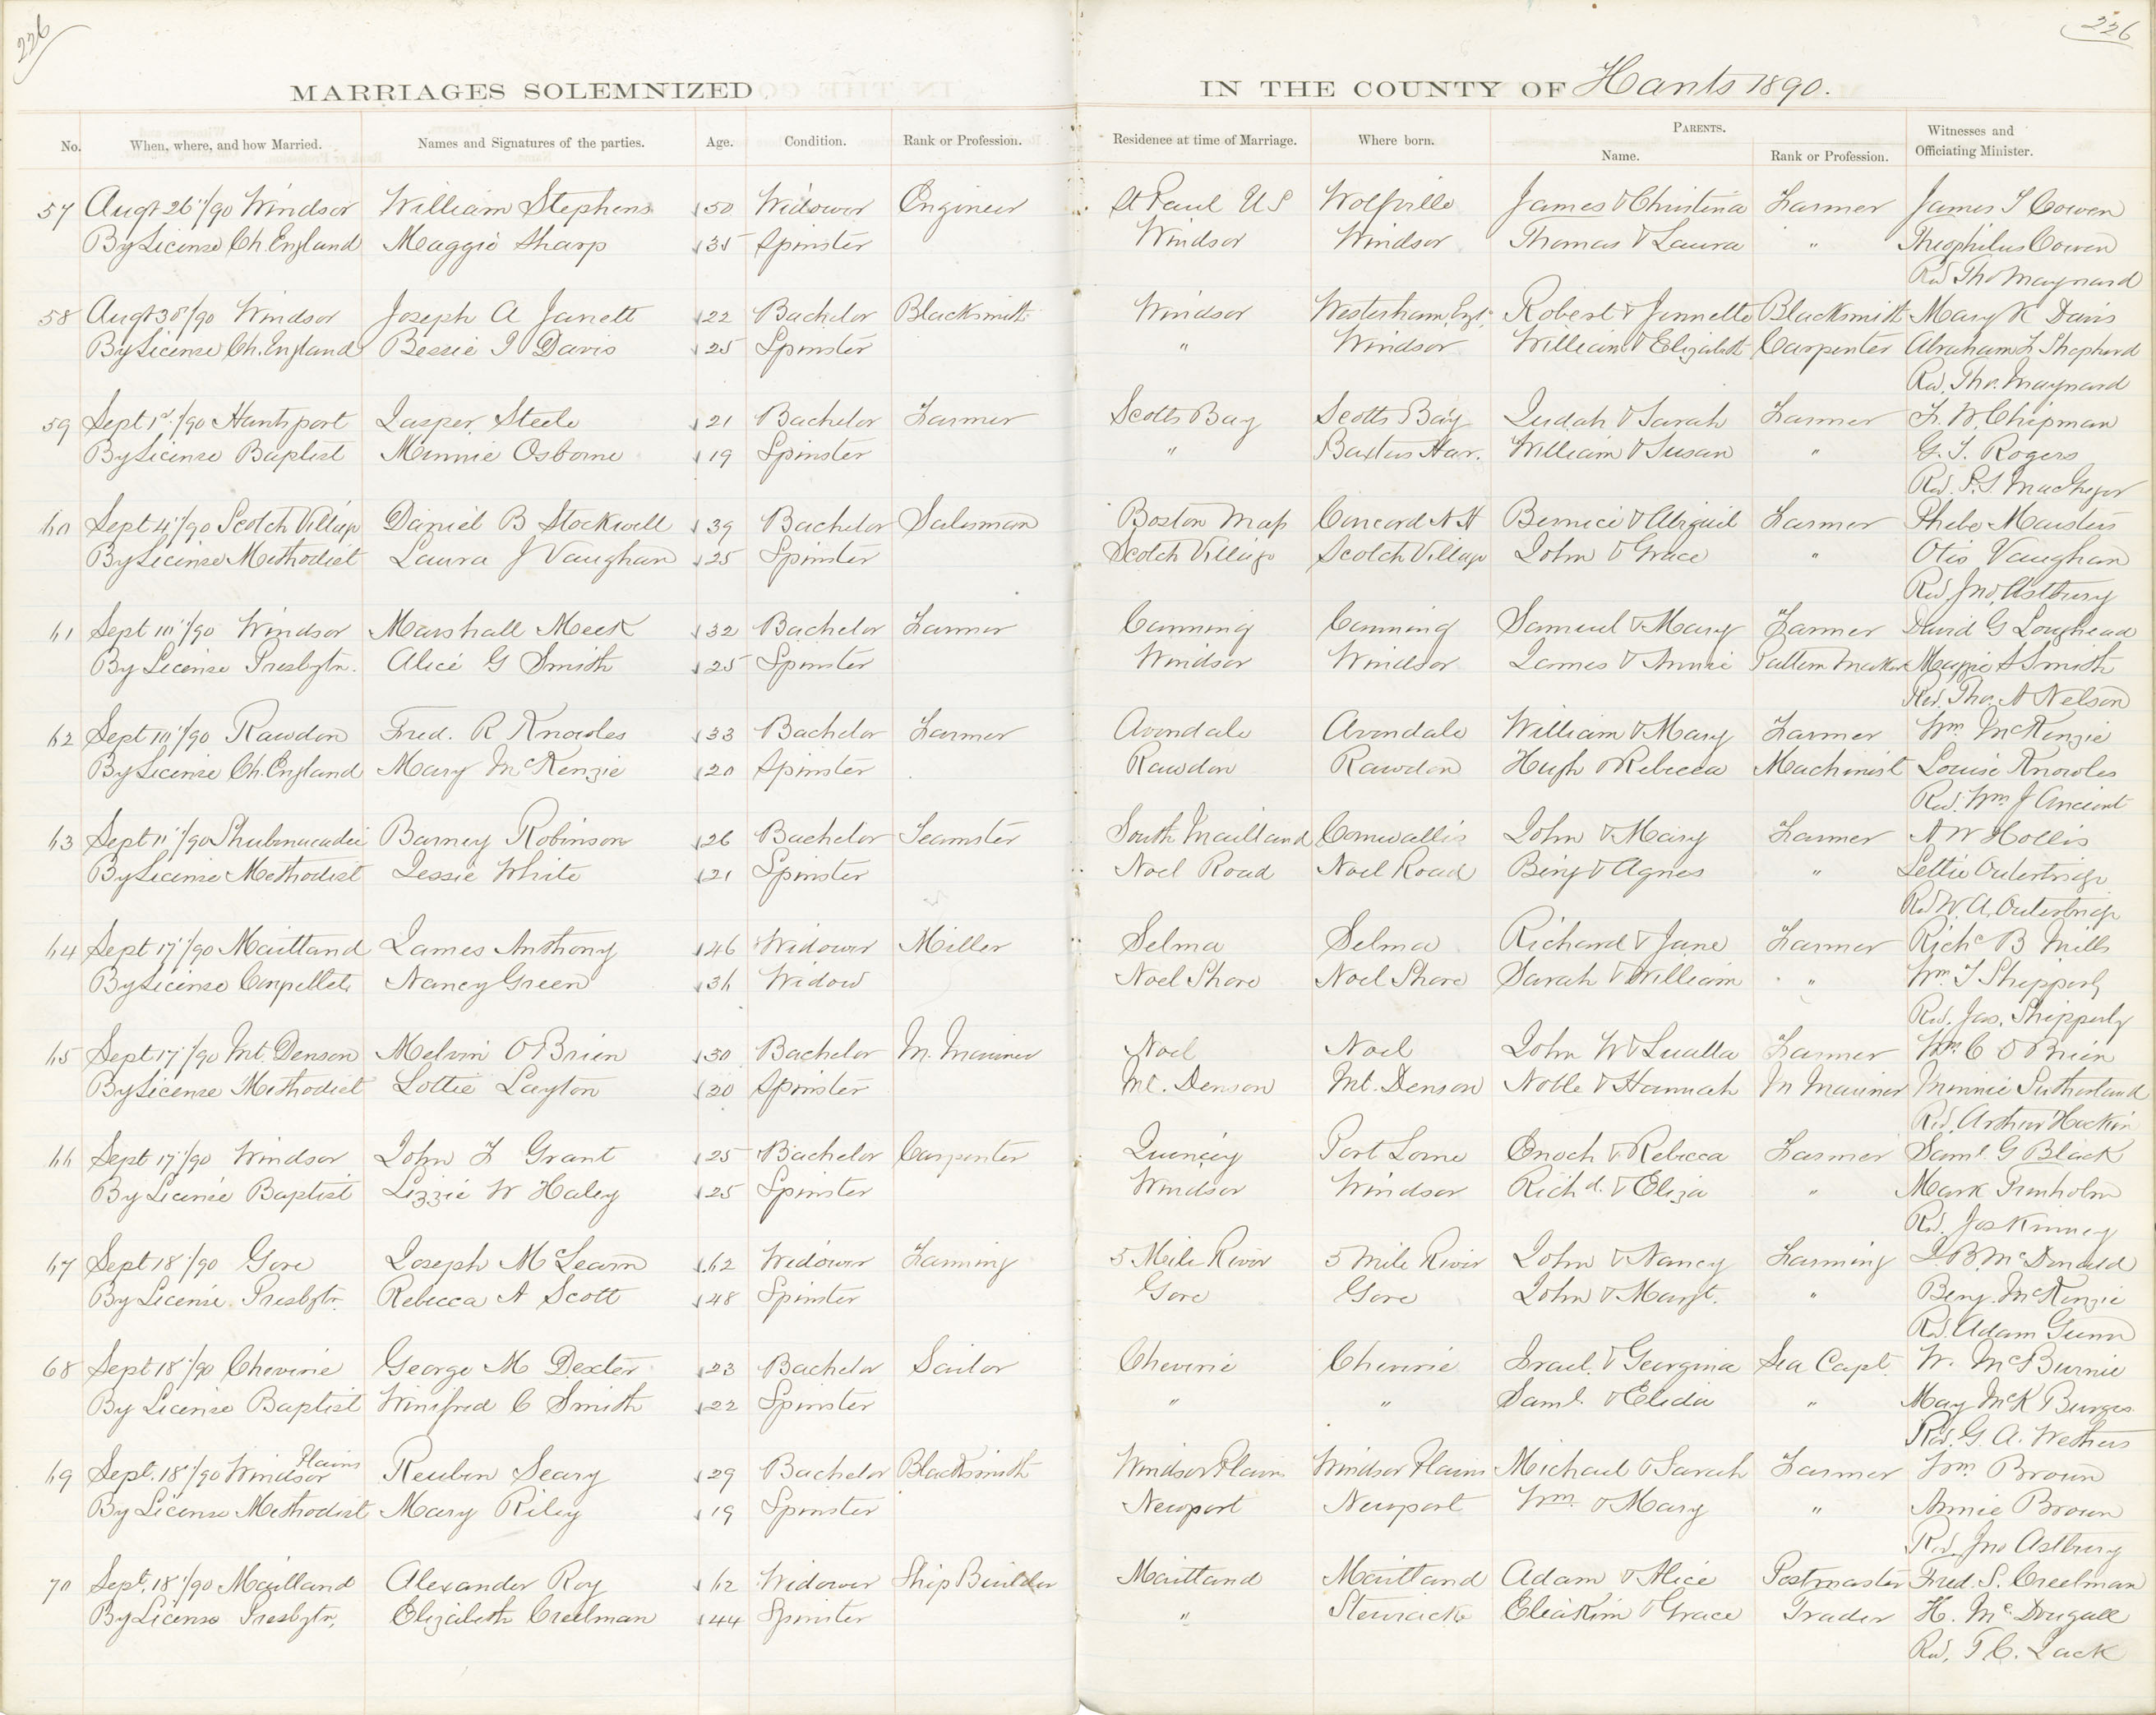 226
226
MARRIAGES SOLEMNIZED
IN THE COUNTY OF Hants 1890.
No. When, where, and how Married. Names and Signatures of the parties. Age. Condition. Rank or Profession. Residence at time of Marriage. Where born. PARENTS. Name. Rank or Profession. Witnesses and Officiating Minister.
57 Augt 26"/90 Windsor William Stephens 50 Widower Engineer St Paul US Wolfville James & Christina Farmer James T Cowen
By License Ch. England Maggie Sharp 35 Spinster Windsor Windsor Thomas & Laura " Theophilus Cowen
Rev Tho Maynard
58 Augt 30"/90 Windsor Joseph A Jarrett 22 Bachelor Blacksmith Windsor Westerham, Engl. Robert & Jennette Blacksmith Mary K Davis
By License Ch. England Bessie I Davis 25 Spinster " Windsor William & Elizabeth Carpenter Abraham L Shepherd
Rev. Tho. Maynard
59 Sept 1st/90 Hantsport Jasper Steele 21 Bachelor Farmer Scotts Bay Scotts Bay Judah & Sarah Farmer F. W. Chipman
By License Baptist Minnie Osborne 19 Spinster " Baxters Har. William & Susan " G. T. Rogers
Rev. P. S. MacGregor
60 Sept 4"/90 Scotch Village Daniel B Stockwell 39 Bachelor Salesman Boston Mass Concord N H Bernice & Abigail Farmer Phebe Masters
By License Methodist Laura J Vaughan 25 Spinster Scotch Village Scotch Village John & Grace " Otis Vaughan
Rev Jno. Astbury
61 Sept 10"/90 Windsor Marshall Meek 32 Bachelor Farmer Canning Canning Samuel & Mary Farmer David G Loughead
By License Presbytn. Alice G Smith 25 Spinster Windsor Windsor James & Annie Pattern Maker Maggie A Smith
Rev. Tho. A Nelson
62 Sept 10"/90 Rawdon Fred. R Knowles 33 Bachelor Farmer Avondale Avondale William & Mary Farmer Wm McKenzie
By License Ch. England Mary McKenzie 20 Spinster Rawdon Rawdon Hugh & Rebecca Machinist Louise Knowles
Rev. Wm J Ancient
63 Sept 11"/90 Shubenacadie Barney Robinson 26 Bachelor Teamster South Maitland Cornwallis John & Mary Farmer A W Hollis
By License Methodist Jessie White 21 Spinster Noel Road Noel Road Benj & Agnes " Lettie Outerbridge
Rev W. A. Outerbridge
64 Sept 17"/90 Maitland James Anthony 46 Widower Miller Selma Selma Richard & Jane Farmer Richd B Mills
By License Campellite Nancy Green 36 Widow Noel Shore Noel Shore Sarah & William " Wm. T Shipperly
Rev. Jas. Shipperly
65 Sept 17"/90 Mt. Denson Melvin O Brien 30 Bachelor M. Mariner Noel Noel John W & Lualla Farmer Wm. C O Brien
By License Methodist Lottie Layton 20 Spinster Mt. Denson Mt. Denson Noble & Hannah M Mariner Minnie Sutherland
Rev. Arthur Hockin
66 Sept 17"/90 Windsor John F Grant 25 Bachelor Carpenter Quincey Port Lorne Enoch & Rebecca Farmer Saml. G Black
By License Baptist Lizzie W Haley 25 Spinster Windsor Windsor Richd. & Eliza " Mark Trenholm
Rev. Jos Kinney
67 Sept 18"/90 Gore Joseph McLearn 62 Widower Farming 5 Mile River 5 Mile River John & Nancy Farming J. B. McDonald
By License Presbytn. Rebecca A Scott 48 Spinster Gore Gore John & Margt. " Benj. McKenzie
Rev. Adam Gunn
68 Sept 18"/90 Cheverie George M Dexter 23 Bachelor Sailor Cheverie Cheverie Israel & Georgina Sea Capt. W. McBurnie
By License Baptist Winifred C Smith 22 Spinster " " Saml. & Elida " May McK Burges
Rev. G. A. Wethers
69 Sept. 18"/90 Windsor Plains Reuben Seary 29 Bachelor Blacksmith Windsor Plains Windsor Plains Michael & Sarah Farmer Wm Brown
By License Methodist Mary Riley 19 Spinster Newport Newport Wm. & Mary " Annie Brown
Rev. Jno Astbury
70 Sept. 18"/90 Maitland Alexander Roy 62 Widower Ship Builder Maitland Maitland Adam & Alice Postmaster Fred. S. Creelman
By License Presbytn. Elizabeth Creelman 44 Spinster " Stewiacke Eliakim & Grace Trader H. McDougall
Rev. T C. Jack